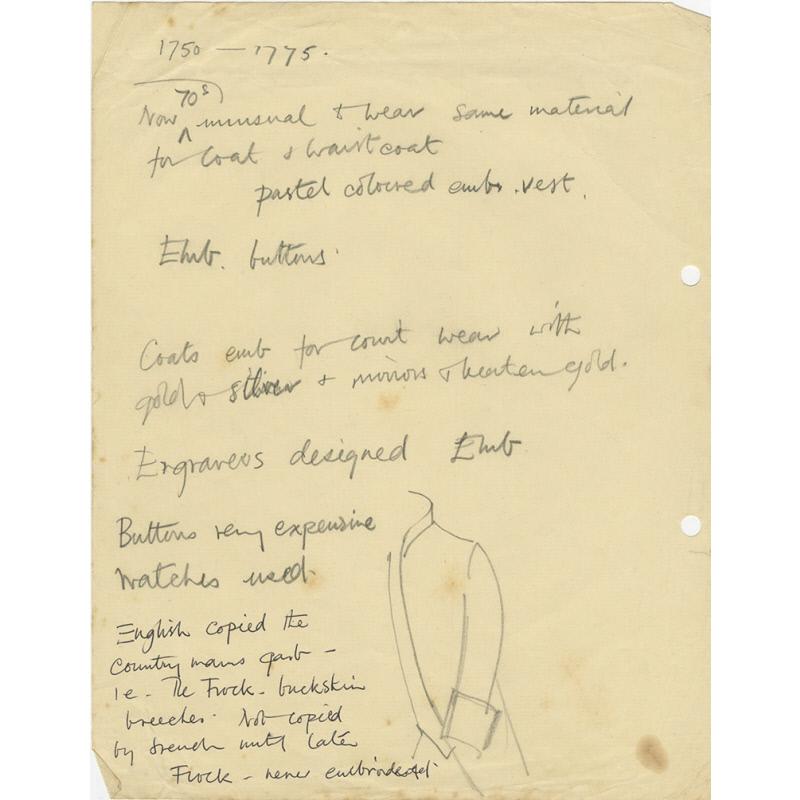 1750 — 1775.
70s
Now unusual to wear same material
for Coat & Waistcoat
pastel coloured emb. vest.
Emb. buttons.
Coats emb for court wear with
gold & silver & mirrors & beaten gold.
Engravers designed Emb
Buttons very expensive
Watches used.
English copied the
Country mans garb –
ie. The Frock. buckskin
breeches. Not copied
by French until later
Frock – never embroidered